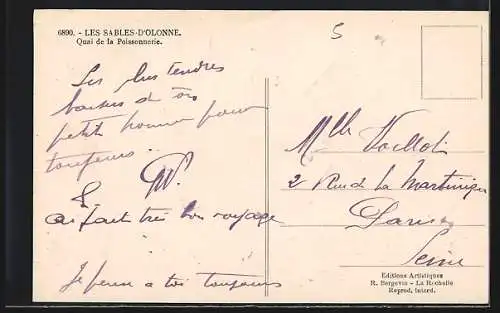 6890. - LES SABLES-D'OLONNE.
Quai de la Poissonnerie.
5
Les plus tendres
baisers de ton
petit homme pour
toujours
fait très bon voyage
Je pense a toi toujours
Mlle
2 Rue de La Martinique
Paris
Seine
Editions Artistiques
R. Bergevin - La Rochelle
Reprod. interd.